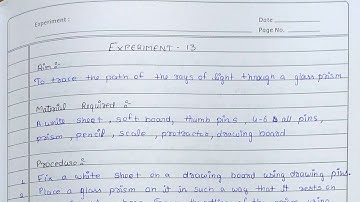 Experiment :
Date
Page No.
EXPERIMENT - 13
Aim :-
To trace the path of the rays of light through a glass prism
Material Required :-
A white sheet, soft board, thumb pins, 4-6 all pins,
prism, pencil, scale, protractor, drawing board
Procedure :-
1. Fix a white sheet on a drawing board using drawing pins.
2. Place a glass prism on it in such a way that it rests on